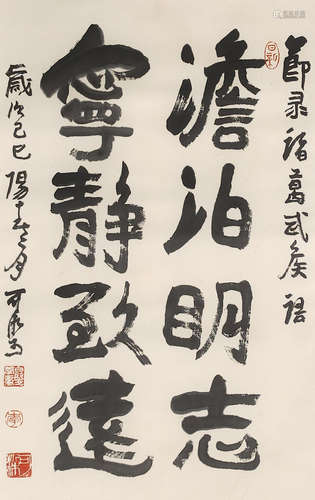 節录諸葛武侯語
澹泊明志
寧静致遠
歲次己巳陽春三月可染